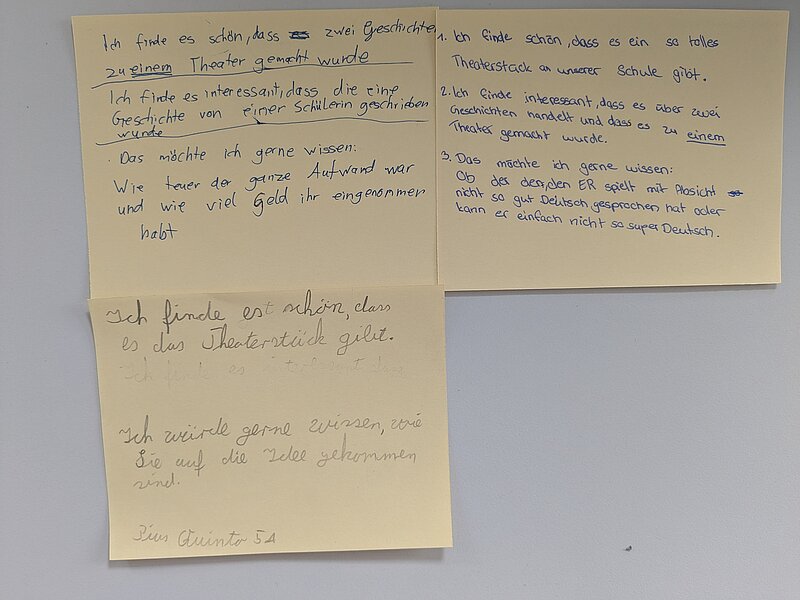 Ich finde es schön, dass zwei Geschichten
zu einem Theater gemacht wurde
Ich finde es interessant, dass die eine
Geschichte von einer Schülerin geschrieben
wurde
Das möchte ich gerne wissen:
Wie teuer der ganze Aufwand war
und wie viel Geld ihr eingenommen
habt
1. Ich finde schön, dass es ein so tolles
Theaterstück an unserer Schule gibt.
2. Ich finde interessant, dass es über zwei
Geschichten handelt und dass es zu einem
Theater gemacht wurde.
3. Das möchte ich gerne wissen:
Ob des der, den ER spielt mit Absicht
nicht so gut Deutsch gesprochen hat oder
kann er einfach nicht so super Deutsch.
Ich finde est schön, dass
es das Theaterstück gibt.
Ich finde es interessant dass
Ich würde gerne wissen, wie
Sie auf die Idee gekommen
sind.
Pius Quinto 5A